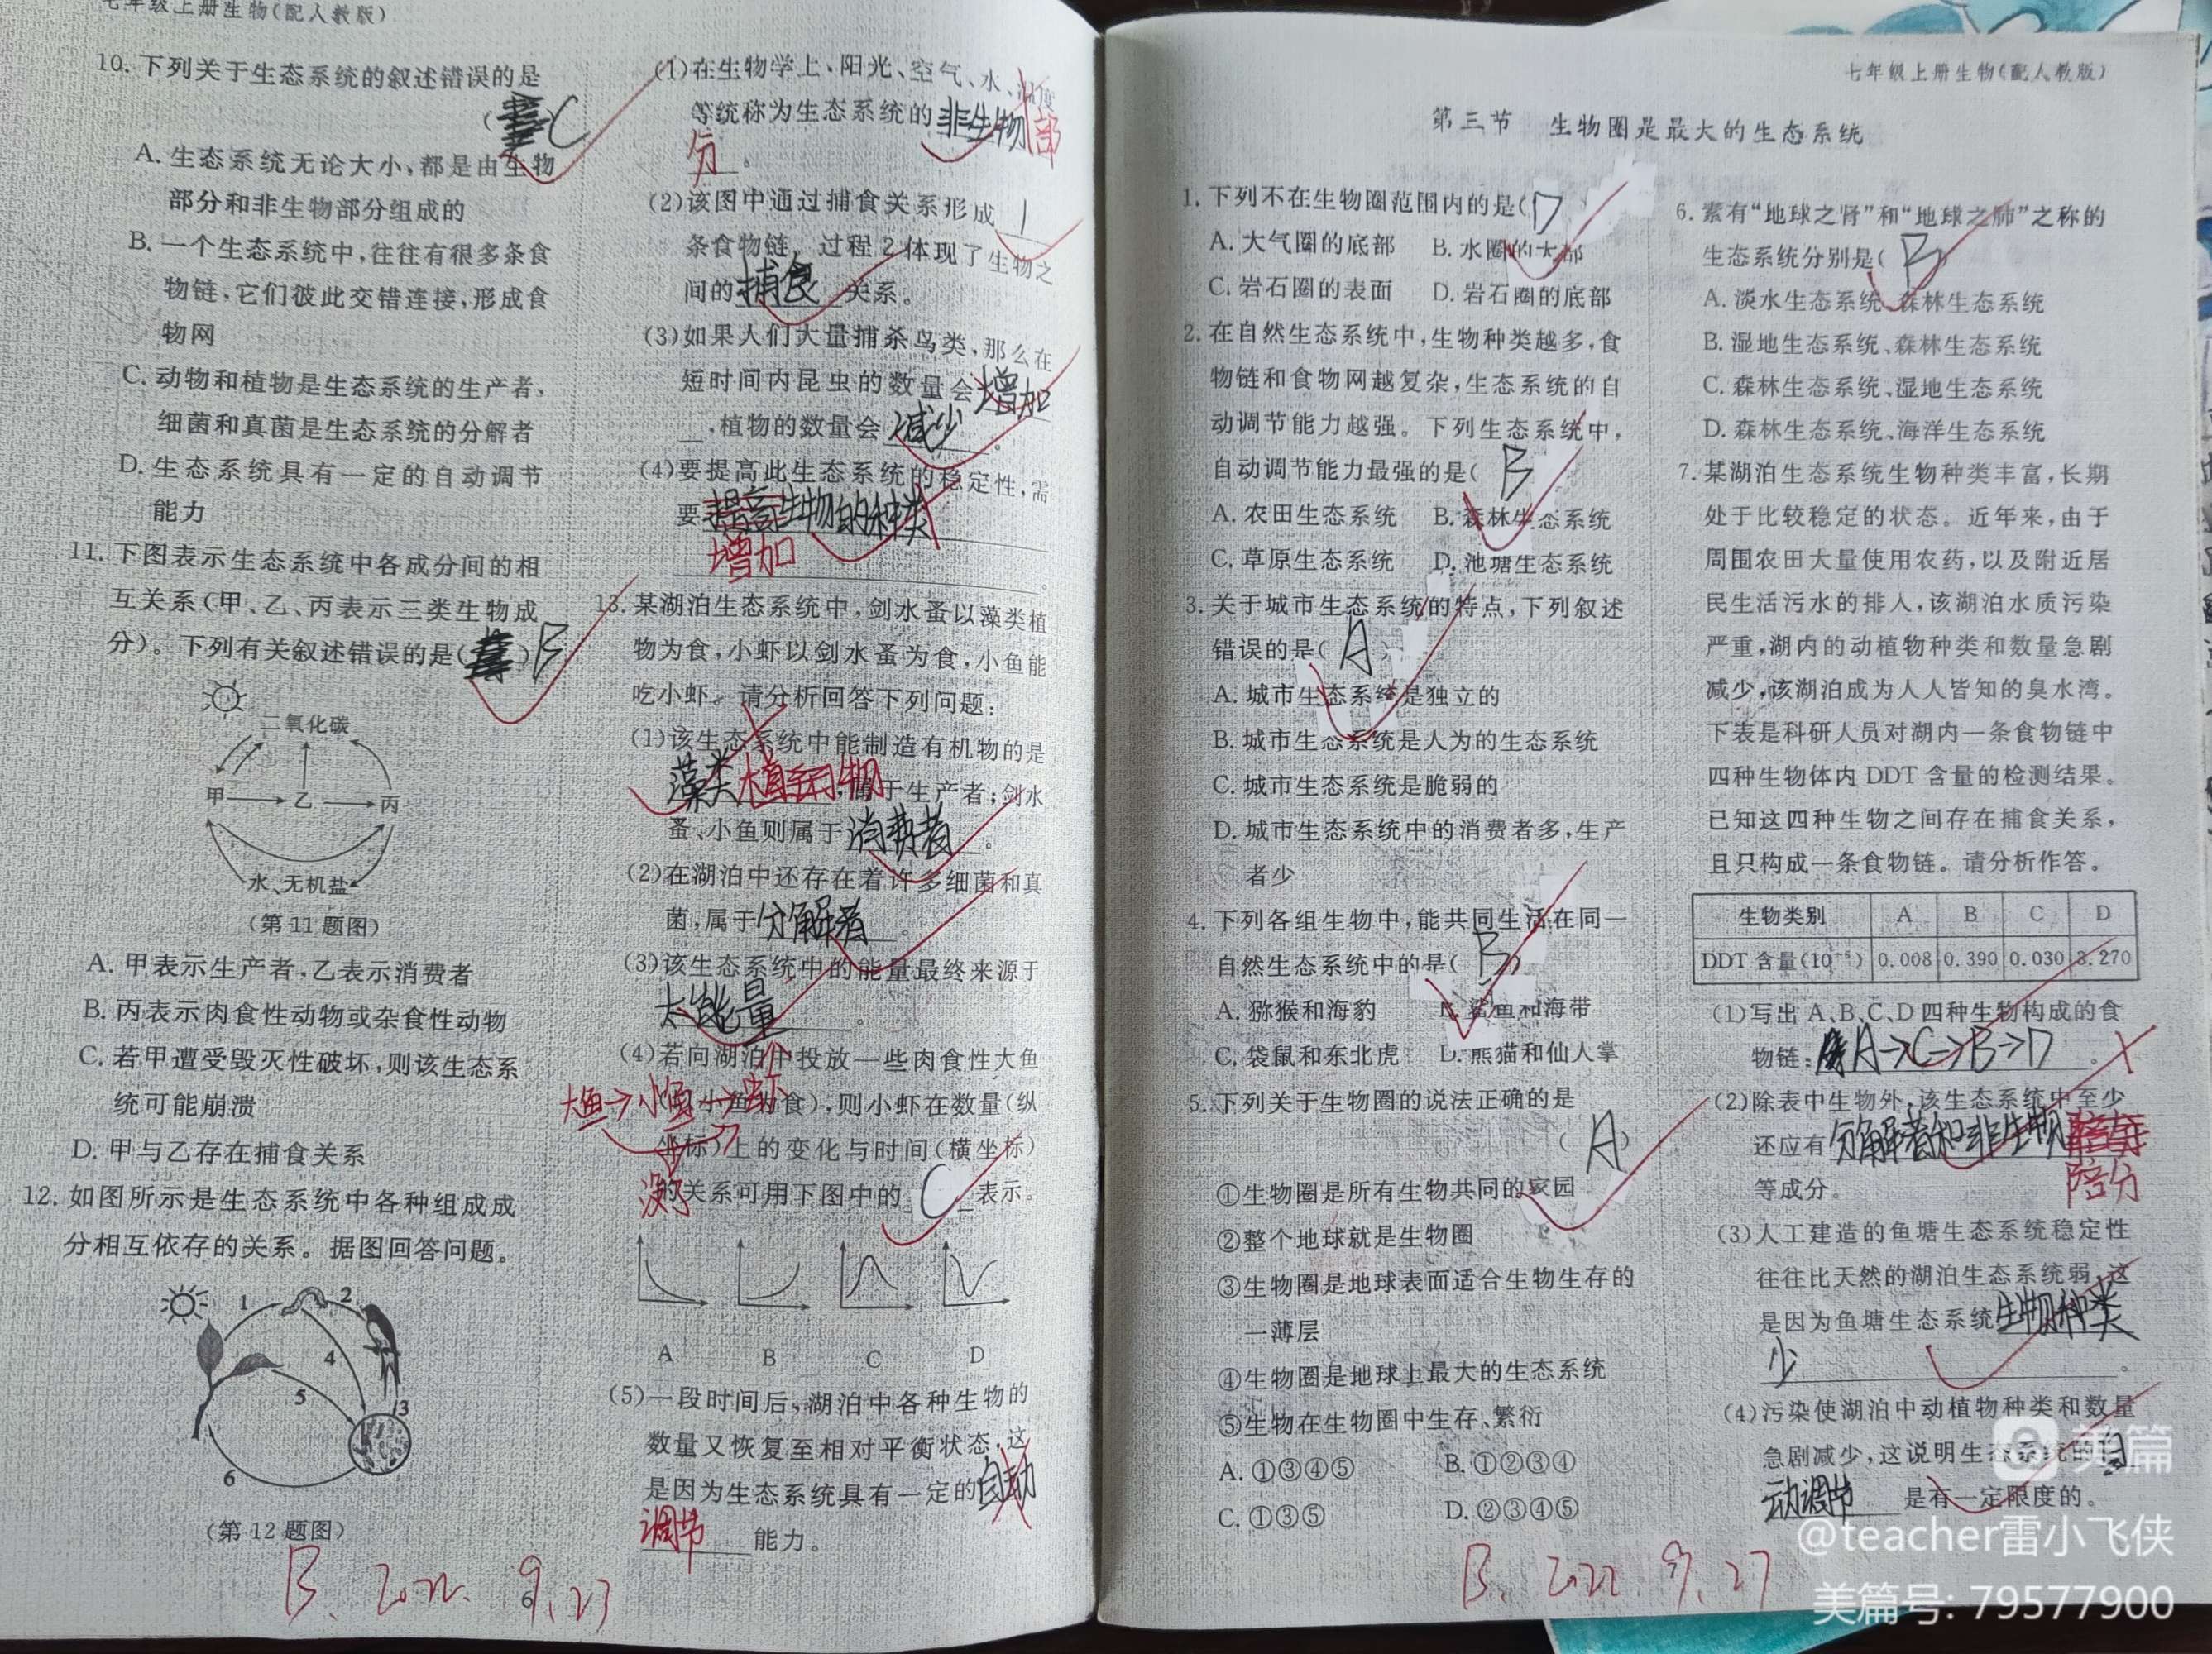 七年级上册生物(配人教版)
10. 下列关于生态系统的叙述错误的是
( C
A. 生态系统无论大小,都是由生物
部分和非生物部分组成的
B. 一个生态系统中,往往有很多条食
物链,它们彼此交错连接,形成食
物网
C. 动物和植物是生态系统的生产者、
细菌和真菌是生态系统的分解者
D. 生态系统具有一定的自动调节
能力
11. 下图表示生态系统中各成分间的相
互关系(甲、乙、丙表示三类生物成
分)。下列有关叙述错误的是( )B
二氧化碳
甲 乙 丙
水、无机盐
(第11题图)
A. 甲表示生产者,乙表示消费者
B. 丙表示肉食性动物或杂食性动物
C. 若甲遭受毁灭性破坏,则该生态系
统可能崩溃
D. 甲与乙存在捕食关系
12. 如图所示是生态系统中各种组成成
分相互依存的关系。据图回答问题。
1 2
4
5
3
6
(第12题图)
B. 2022. 9.27
(1)在生物学上、阳光、空气、水、温度
等统称为生态系统的非生物部
分。
(2)该图中通过捕食关系形成 1
条食物链,过程2体现了生物之
间的捕食关系。
(3)如果人们大量捕杀鸟类,那么在
短时间内昆虫的数量会增加
,植物的数量会减少。
(4)要提高此生态系统的稳定性,需
要提高生物的种类
增加
。
13. 某湖泊生态系统中,剑水蚤以藻类植
物为食,小虾以剑水蚤为食,小鱼能
吃小虾。请分析回答下列问题:
(1)该生态系统中能制造有机物的是
藻类植物,属于生产者;剑水
蚤、小鱼则属于消费者。
(2)在湖泊中还存在着许多细菌和真
菌,属于分解者。
(3)该生态系统中的能量最终来源于
太能量。
(4)若向湖泊中投放一些肉食性大鱼
大鱼→小鱼→虾
小鱼为食),则小虾在数量(纵
坐标)上的变化与时间(横坐标)
没了
的关系可用下图中的 C 表示。
A B C D
(5)一段时间后,湖泊中各种生物的
数量又恢复至相对平衡状态,这
是因为生态系统具有一定的自动
调节 能力。
6
七年级上册生物(配人教版)
第三节 生物圈是最大的生态系统
1. 下列不在生物圈范围内的是( D
A. 大气圈的底部 B. 水圈的大部
C. 岩石圈的表面 D. 岩石圈的底部
2. 在自然生态系统中,生物种类越多,食
物链和食物网越复杂,生态系统的自
动调节能力越强。下列生态系统中,
自动调节能力最强的是( B
A. 农田生态系统 B. 森林生态系统
C. 草原生态系统 D. 池塘生态系统
3. 关于城市生态系统的特点,下列叙述
错误的是( A )
A. 城市生态系统是独立的
B. 城市生态系统是人为的生态系统
C. 城市生态系统是脆弱的
D. 城市生态系统中的消费者多,生产
者少
4. 下列各组生物中,能共同生活在同一
自然生态系统中的是( B )
A. 猕猴和海豹 B. 鲨鱼和海带
C. 袋鼠和东北虎 D. 熊猫和仙人掌
5. 下列关于生物圈的说法正确的是
( A )
①生物圈是所有生物共同的家园
②整个地球就是生物圈
③生物圈是地球表面适合生物生存的
一薄层
④生物圈是地球上最大的生态系统
⑤生物在生物圈中生存、繁衍
A. ①③④⑤ B. ①②③④
C. ①③⑤ D. ②③④⑤
B. 2022. 9. 27
6. 素有“地球之肾”和“地球之肺”之称的
生态系统分别是( B )
A. 淡水生态系统、森林生态系统
B. 湿地生态系统、森林生态系统
C. 森林生态系统、湿地生态系统
D. 森林生态系统、海洋生态系统
7. 某湖泊生态系统生物种类丰富,长期
处于比较稳定的状态。近年来,由于
周围农田大量使用农药,以及附近居
民生活污水的排入,该湖泊水质污染
严重,湖内的动植物种类和数量急剧
减少,该湖泊成为人人皆知的臭水湾。
下表是科研人员对湖内一条食物链中
四种生物体内DDT含量的检测结果。
已知这四种生物之间存在捕食关系,
且只构成一条食物链。请分析作答。
生物类别 A B C D
DDT含量(10⁻⁶) 0.008 0.390 0.030 8.270
(1)写出A、B、C、D四种生物构成的食
物链: A→C→B→D 。
(2)除表中生物外,该生态系统中至少
还应有分解者和非生物
等成分。 陪分
(3)人工建造的鱼塘生态系统稳定性
往往比天然的湖泊生态系统弱,这
是因为鱼塘生态系统生物种类
少 。
(4)污染使湖泊中动植物种类和数量
急剧减少,这说明生态系统的自
动调节 是有一定限度的。
美篇
@teacher雷小飞侠
美篇号: 79577900